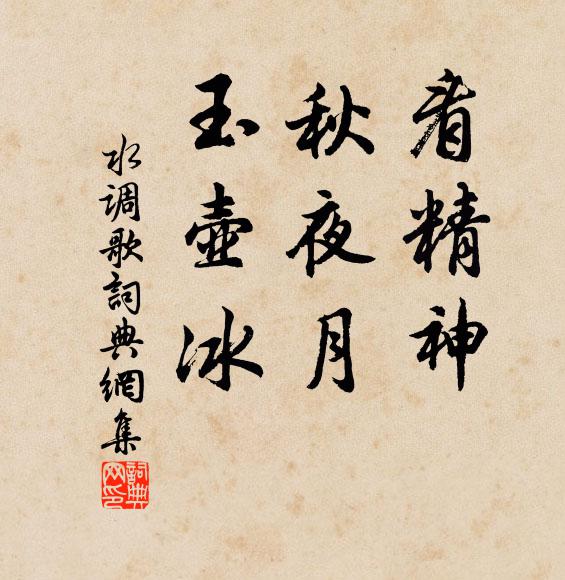 看精神
秋夜月
玉壺冰
水调歌詞典網集
詞典网印